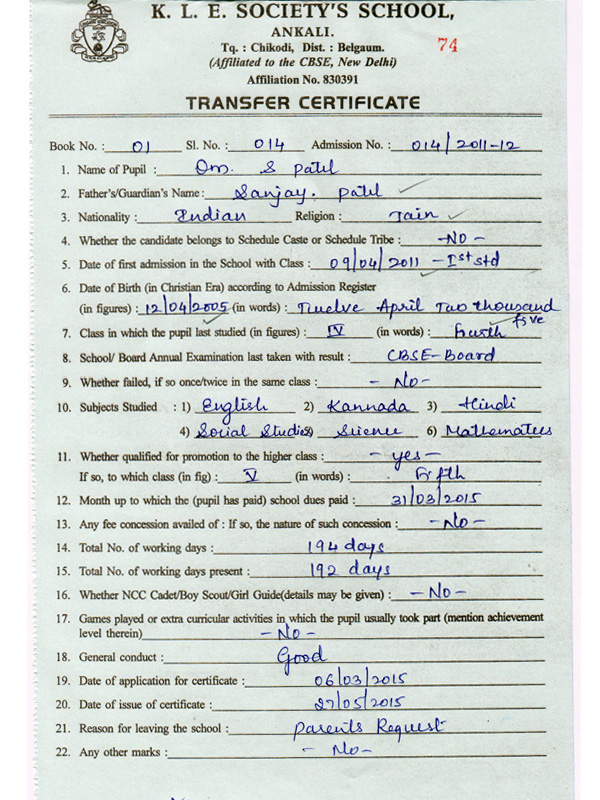 K. L. E. SOCIETY'S SCHOOL,
ANKALI.
Tq. : Chikodi, Dist. : Belgaum.
74
(Affiliated to the CBSE, New Delhi)
Affiliation No. 830391
TRANSFER CERTIFICATE
Book No. : 01 Sl. No. : 014 Admission No. : 014/2011-12
1. Name of Pupil : Om. S Patil
2. Father's/Guardian's Name : Sanjay. Patil
3. Nationality : Indian Religion : Jain
4. Whether the candidate belongs to Schedule Caste or Schedule Tribe : -NO-
5. Date of first admission in the School with Class : 09/04/2011 - Ist std
6. Date of Birth (in Christian Era) according to Admission Register
(in figures) : 12/04/2005 (in words) : Twelve April Two thousand five
7. Class in which the pupil last studied (in figures) : IV (in words) : fourth
8. School/ Board Annual Examination last taken with result : CBSE-Board
9. Whether failed, if so once/twice in the same class : - No -
10. Subjects Studied : 1) English 2) Kannada 3) Hindi
4) Social Studies 5) Science 6) Mathematics
11. Whether qualified for promotion to the higher class : - yes -
If so, to which class (in fig) : V (in words) : Fifth
12. Month up to which the (pupil has paid) school dues paid : 31/03/2015
13. Any fee concession availed of : If so, the nature of such concession : -No-
14. Total No. of working days : 194 days
15. Total No. of working days present : 192 days
16. Whether NCC Cadet/Boy Scout/Girl Guide(details may be given) : - No -
17. Games played or extra curricular activities in which the pupil usually took part (mention achievement
level therein) - No -
18. General conduct : Good
19. Date of application for certificate : 06/03/2015
20. Date of issue of certificate : 27/05/2015
21. Reason for leaving the school : Parents Request
22. Any other marks : - No -